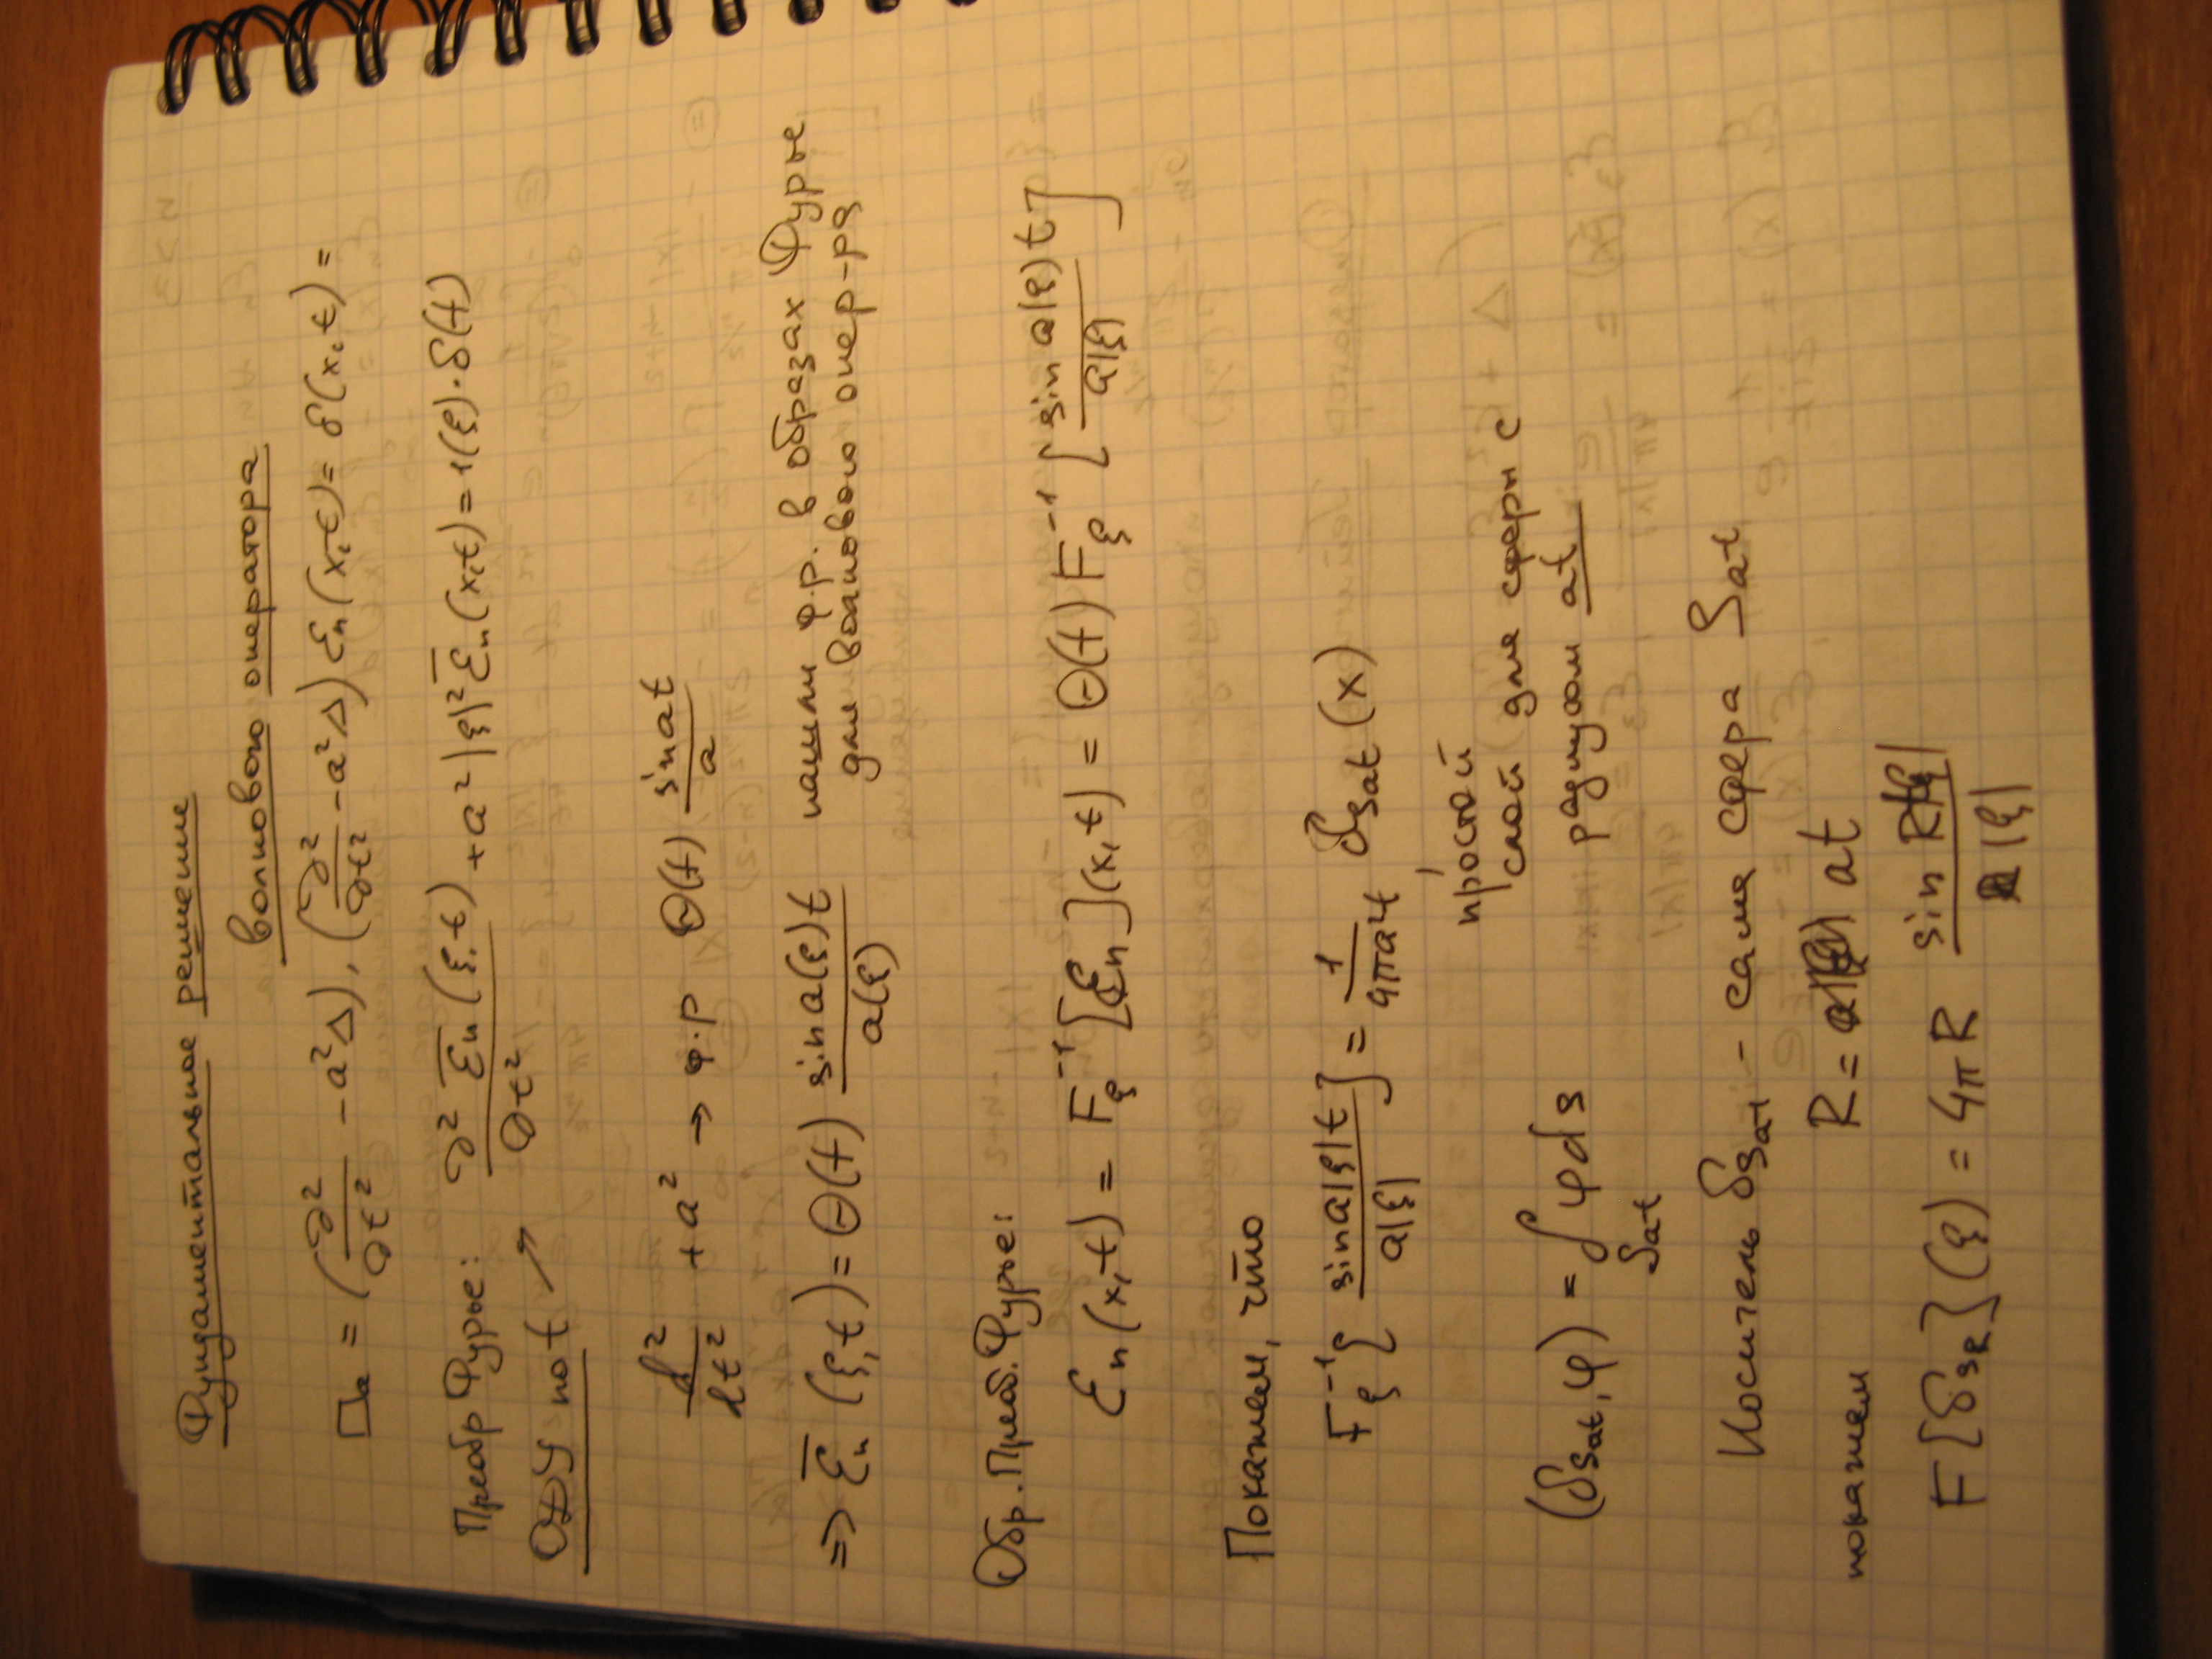 Фундаментальное решение
волнового оператора
□a = (∂²/∂t² - a²Δ), (∂²/∂t² - a²Δ) Ɛn(x,t) = δ(x,t) =
Преобр Фурье: ∂² Ɛ̅n(ξ,t)/∂t² + a²|ξ|² Ɛ̅n(x,t) = 1(ξ)·δ(t)
ОДУ по t ↗
d²/dt² + a² → ф.р θ(t) sin at/a
=> Ɛ̅n(ξ,t) = θ(t) sin a|ξ|t/a|ξ| нашли ф.р. в образах Фурье
для волнового опер-ра
Обр. Преоб. Фурье:
Ɛn(x,t) = Fξ⁻¹[Ɛ̅n](x,t) = θ(t) Fξ⁻¹[sin a|ξ|t/a|ξ|]
Покажем, что
Fξ⁻¹[sin a|ξ|t/a|ξ|] = 1/4πa²t δSat(x)
простой
слой для сферы с
радиусом at
(δSat, φ) = ∫Sat φ ds
Носитель δSat - сама сфера Sat
покажем R = at
F[δSR](ξ) = 4πR sin R|ξ|/|ξ|